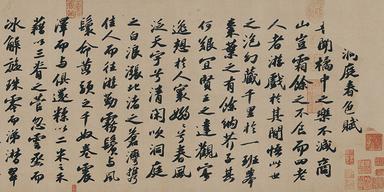 洞庭春色賦
吾聞橘中之樂不減商
山豈霜餘之不食而四老
人者游戲於其間悟此世
之泡幻藏千里於一班舉
棗葉之有餘納芥子其
何艱宜賢王之達觀寄
逸想於人寰嫋嫋兮春風
泛天宇兮清閑吹洞庭
之白浪漲北渚之蒼灣攜
佳人而往游勤霧鬢與風
鬟命黃頭之千奴卷震
澤而與俱還糅以二米之禾
藉以三脊之菅忽雲烝而
冰解旋珠零而涕潸翠